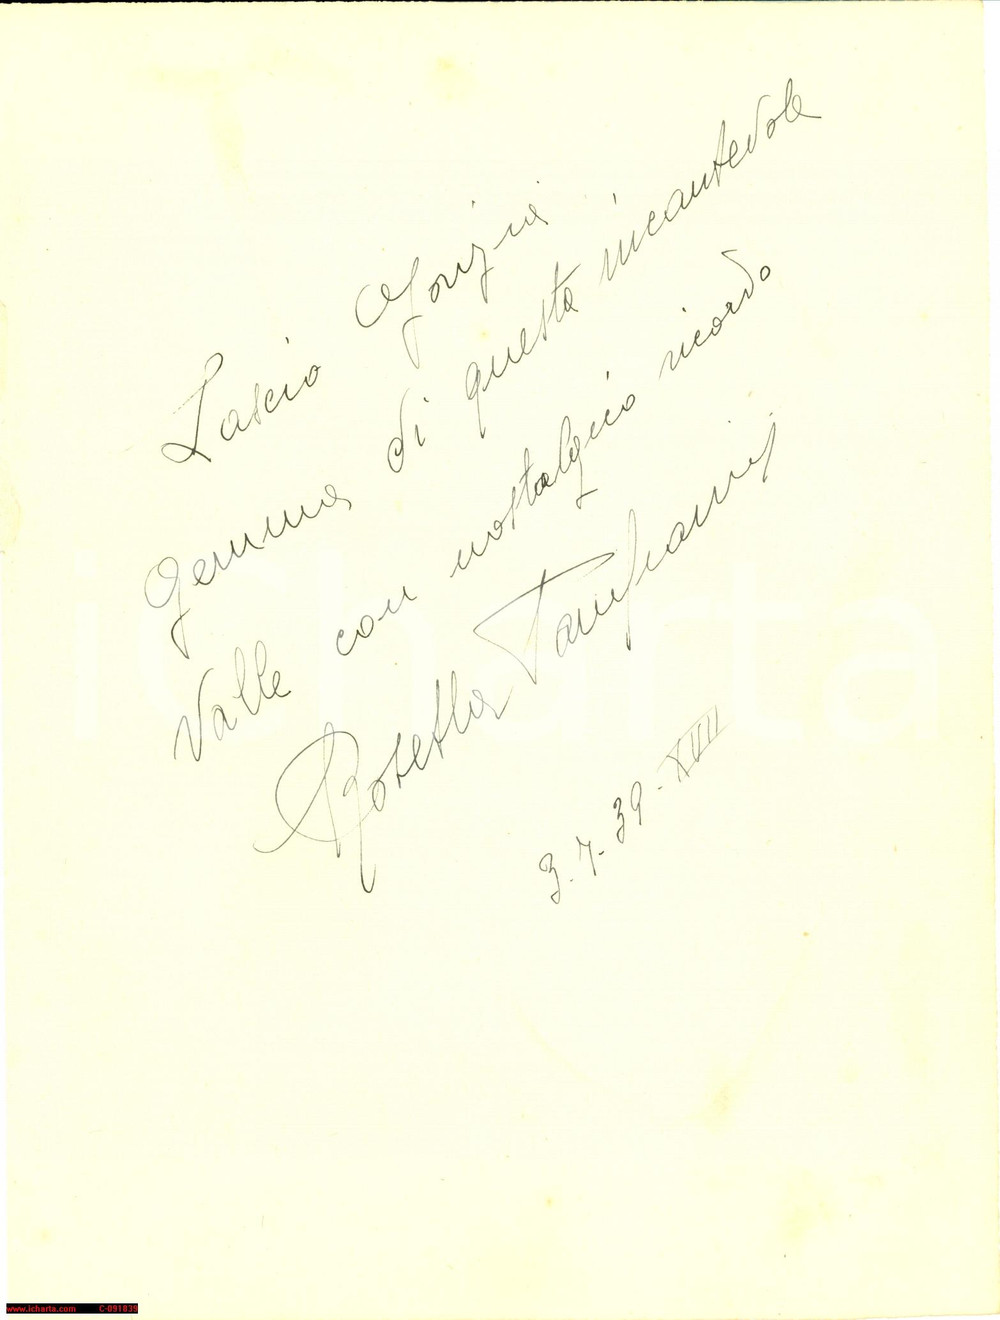 Lascio Gorizia
gemma di questa incantevole
Valle con nostalgico ricordo
Rosetta Pampanini
3.7.39-XVII
iCharta
www.icharta.com C-091839